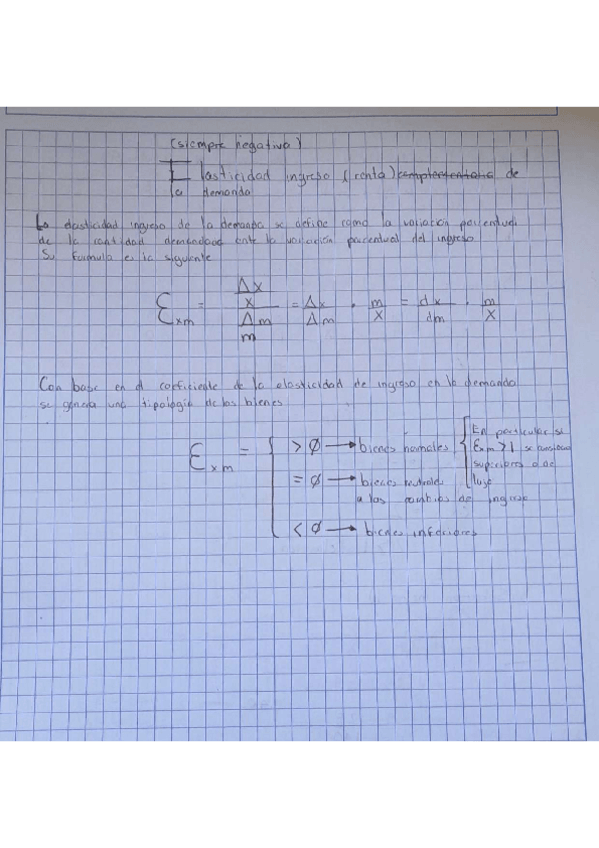 (siempre negativa)
Elasticidad ingreso (renta) complementaria de
la demanda
La elasticidad ingreso de la demanda se define como la variación porcentual
de la cantidad demandada ante la variación porcentual del ingreso
Su formula es la siguiente
Ɛxm = (Δx/x)/(Δm/m) = Δx/Δm · m/x = dx/dm · m/x
Con base en el coeficiente de la elasticidad de ingreso en la demanda
se genera una tipologia de los bienes
Ɛxm = { > Ø → bienes normales [En particular si Ɛxm > 1 se consideran superiores o de lujo
= Ø → bienes neutrales
a los cambios de ingreso
< Ø → bienes inferiores